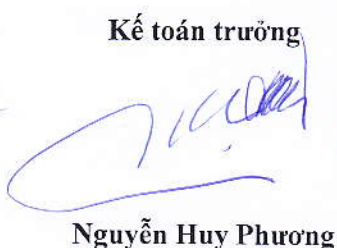 Kế toán trưởng
Nguyễn Huy Phương